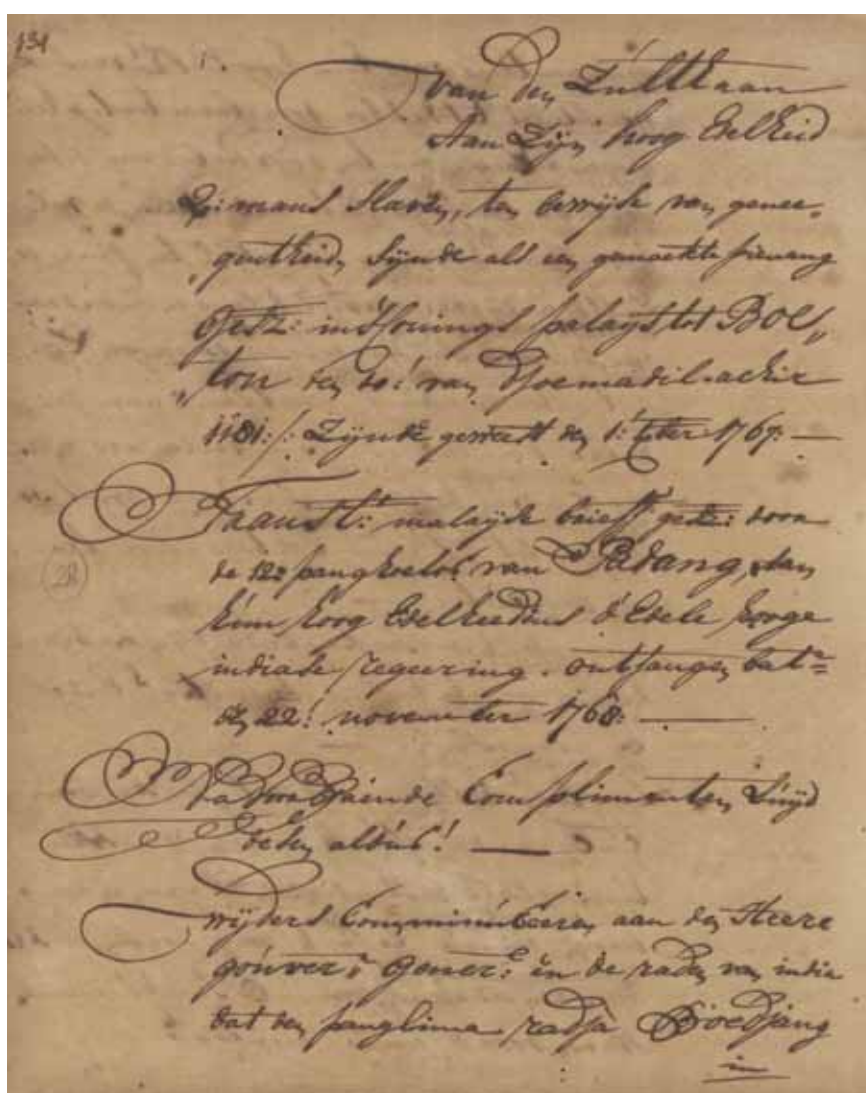 131
van den Zultthaan
Aan Zijn hoog Edelheid
mans Slaven, ten bewijse van genee„
„gentheid, Sijnde als een gemaekte pienang
Gesz: in 's konings palays tot BOE„
„ton den van Djoemadil-achir
1181:/: Zijnde geweest den 1: 1767: —
Translt: malaijse brieff gesz: door
de 12: pangkoelos van Padang, Aan
hún hoog Edelheedens d'Edele hooge
indiase regeering. ontfangen batª
den 22: november 1768: —
28
Na voorgaende Complimenten, Lúijd
desen aldús! —
Wijders Commúniceeren aan den Heere
goúver:r Gener: en de raden van india
dat den panglima radja Boedjang
in